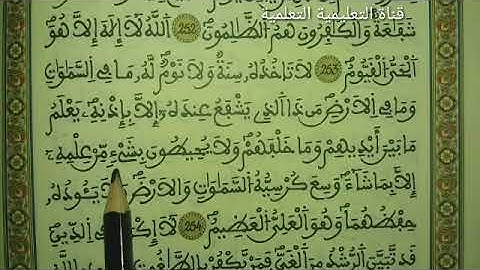 قناة التعليمية التعلمية
شَفَٰعَةٞ وَالْكَٰفِرُونَ هُمُ الظَّٰلِمُونَ 252 اَللَّهُ لَا إِلَٰهَ إِلَّا هُوَ
اَلْحَيُّ الْقَيُّومُ 253 لَا تَاخُذُهُۥ سِنَةٞ وَلَا نَوْمٞ لَّهُۥ مَا فِے السَّمَٰوَٰتِ
وَمَا فِے اِلَارْضِ مَن ذَا اَلذِے يَشْفَعُ عِندَهُۥ إِلَّا بِإِذْنِهِۦ يَعْلَمُ
مَا بَيْنَ أَيْدِيهِمْ وَمَا خَلْفَهُمْ وَلَا يُحِيطُونَ بِشَےْءٖ مِّنْ عِلْمِهِۦ
إِلَّا بِمَا شَآءَ وَسِعَ كُرْسِيُّهُ السَّمَٰوَٰتِ وَالَارْضَ وَلَا يَـُٔودُهُۥ
حِفْظُهُمَا وَهُوَ الْعَلِيُّ الْعَظِيمُ 254 لَا إِكْرَاهَ فِے اِلدِّينِ
قَد تَّبَيَّنَ اَلرُّشْدُ مِنَ اَلْغَيِّ فَمَنْ يَّكْفُرْ بِالطَّٰغُوتِ